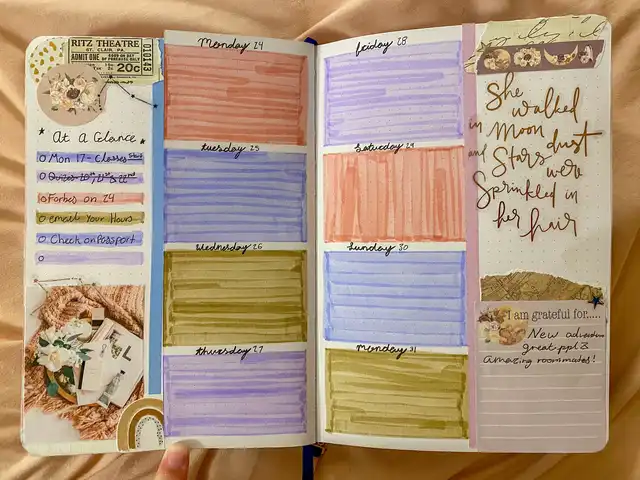 RITZ THEATRE
ST. CLAIR, PA.
ADMIT ONE
20c
010143
At a Glance
Mon 17 - Classes Start
Quizes 20th, 21st & 22nd
Forbes on 24
email Your Hours
Check on Passport
Monday 24
tuesday 25
Wednesday 26
thursday 27
friday 28
Saturday 29
Sunday 30
Monday 31
She
walked
in Moon dust
and Stars
were
Sprinkled in
her hair
I am grateful for.....
New adventure
great ppl 3
Amazing roommates!